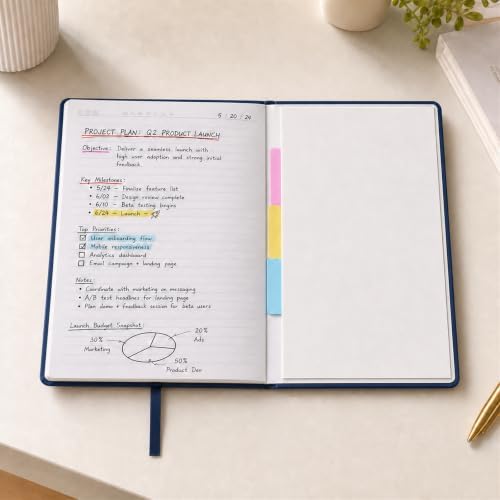 5 / 20 / 24
PROJECT PLAN: Q2 PRODUCT LAUNCH
Objective: Deliver a seamless launch with
high user adoption and strong initial
feedback.
Key Milestones:
• 5/24 – Finalize feature list
• 6/03 – Design review complete
• 6/10 – Beta testing begins
• 6/24 – Launch –
Top Priorities:
☑ User onboarding flow
☑ Mobile responsiveness
☐ Analytics dashboard
☐ Email campaign + landing page
Notes:
• Coordinate with marketing on messaging
• A/B test headlines for landing page
• Plan demo + feedback session for beta users
Launch Budget Snapshot:
20%
Ads
30%
Marketing
50%
Product Dev